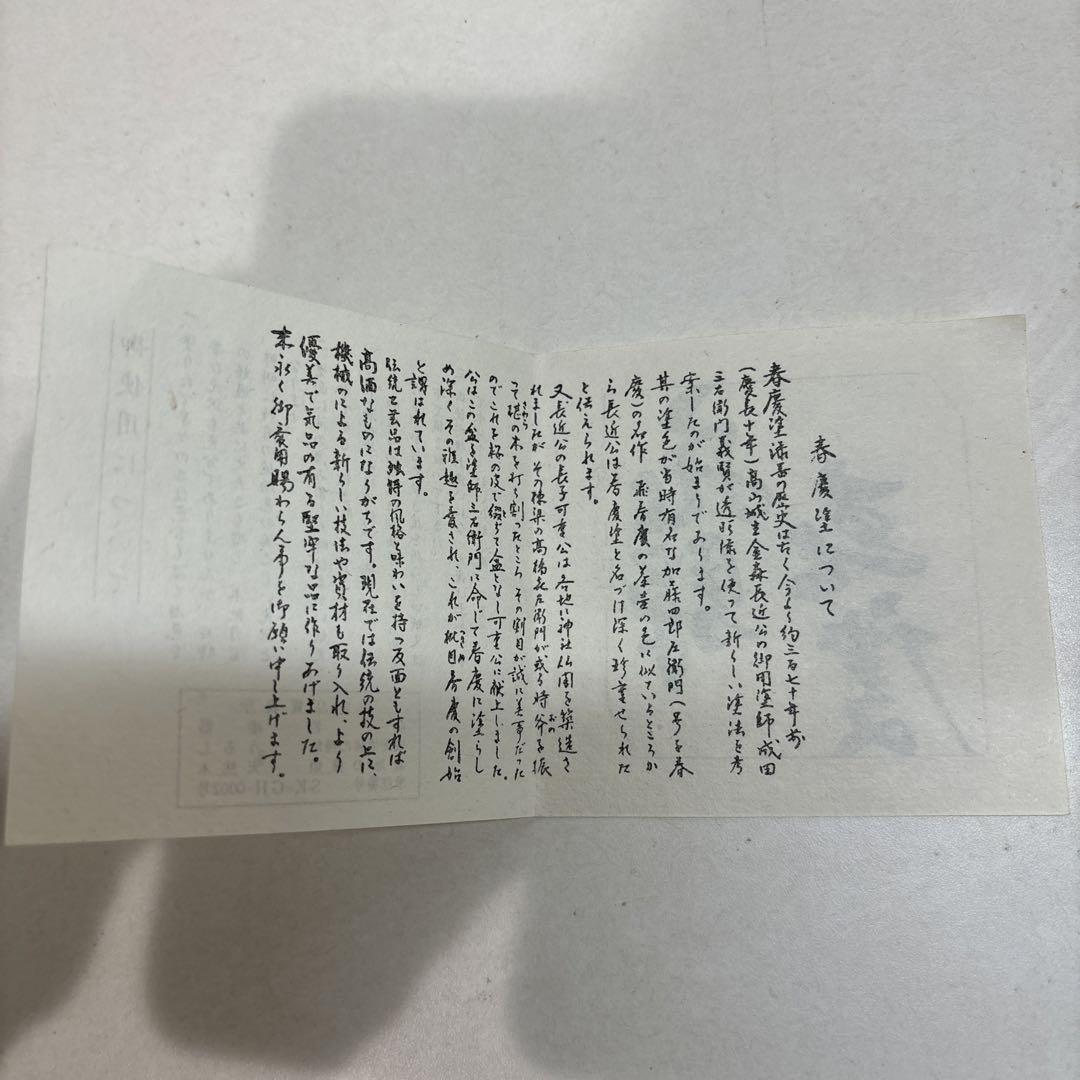 春慶塗について
春慶塗漆器の歴史は古く今より約三百七十年前
(慶長十年)高山城主金森長近公の御用塗師成田
三右衛門義賢が透明漆を使って新らしい塗法を考
案したのが始まりであります。
其の塗色が当時有名な加藤四郎左衛門(号を春
慶)の名作 飛春慶の茶壺の色に似ているところか
ら長近公は春慶塗と名づけ深く珍重せられた
と伝えられます。
又長近公の長子可重公は各地に神社仏閣を築造さ
れましたが その棟梁の高橋喜左衛門が或る時斧を振
おの
って椹の木を打ち割ったところ その割目が誠に美事だった
さわら
のでこれを桜の皮で綴ぢて盆となし可重公に献上しました。
と
公はこの盆を塗師三右衛門に命じて春慶に塗らし
め深くその雅趣を愛され、これが枇目春慶の創始
へぎめ
と謂はれています。
伝統工芸品は独特の風格と味わいを持つ反面ともすれば
高価なものになりがちです。現在では伝統の技の上に、
機械のによる新らしい技法や資材も取り入れ、より
優美で気品の有る堅牢な品に作りあげました。
末永く御愛用賜わらん事を御願い申し上げます。